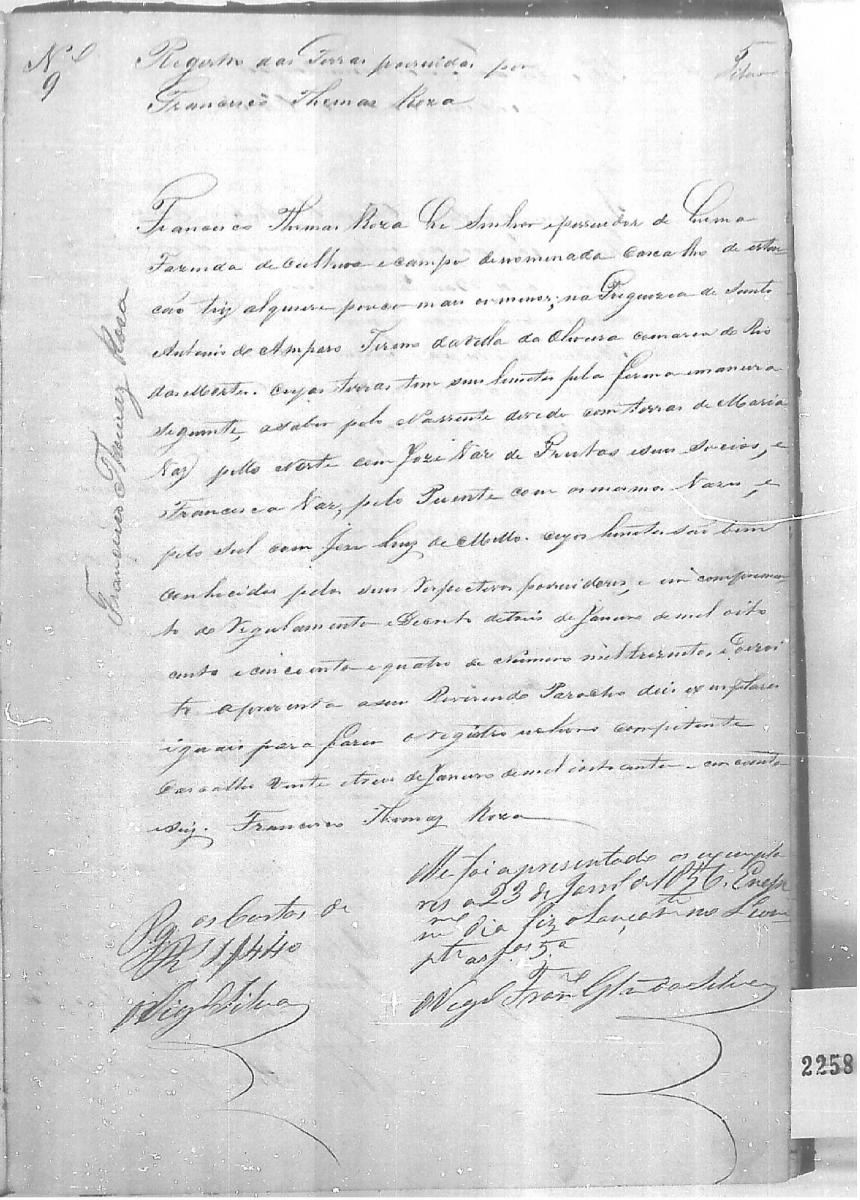 Nº 9
Registro das Terras possuidas por
Francisco Thomas Roza
5
Silva
Francisco Thomaz Rosa
Francisco Thomas Roza he Senhor e possuidor de huma
Fazenda de cultura e campo denominada Cascalho de
tiz alqueire pouco mais ou menos, na Freguezia de Santo
Antonio do Amparo Termo da Villa da Oliveira comarca do Rio
das Mortes. cujas terras tem seus limites pela forma e maneira
seguinte, a saber pelo Nascente devide com terras de Maria
Vaz pello Norte com José Vaz de Freitas e seus socios, e
Francisca Vaz, pelo Puente com os mesmos Vazes, e
pelo Sul com José Luiz de Mello. cujos limites são bem
conhecidos pelos seus respectivos possuidores, e em comprimen
to do Regulamento e Decreto de tris de Janeiro de mil oito
cento e cincoenta e quatro de Número mil trezentos e Dezoi
to apresenta a seu Reverendo Parocho dois exemplares
iguais para fazer o registro no livro competente
Cascalho vinte e tres de Janeiro de mil oito cento e cincoenta
e seis. Francisco Thomaz Roza
Me foi apresentado os exempla
res a 23 de Janrº de 1856. E no
mº dia fiz o Lançamto no L
a f. 5.ª
O Vigº Franº da Silva
Pg os Custos de
1440
O Vigº Silva
2258